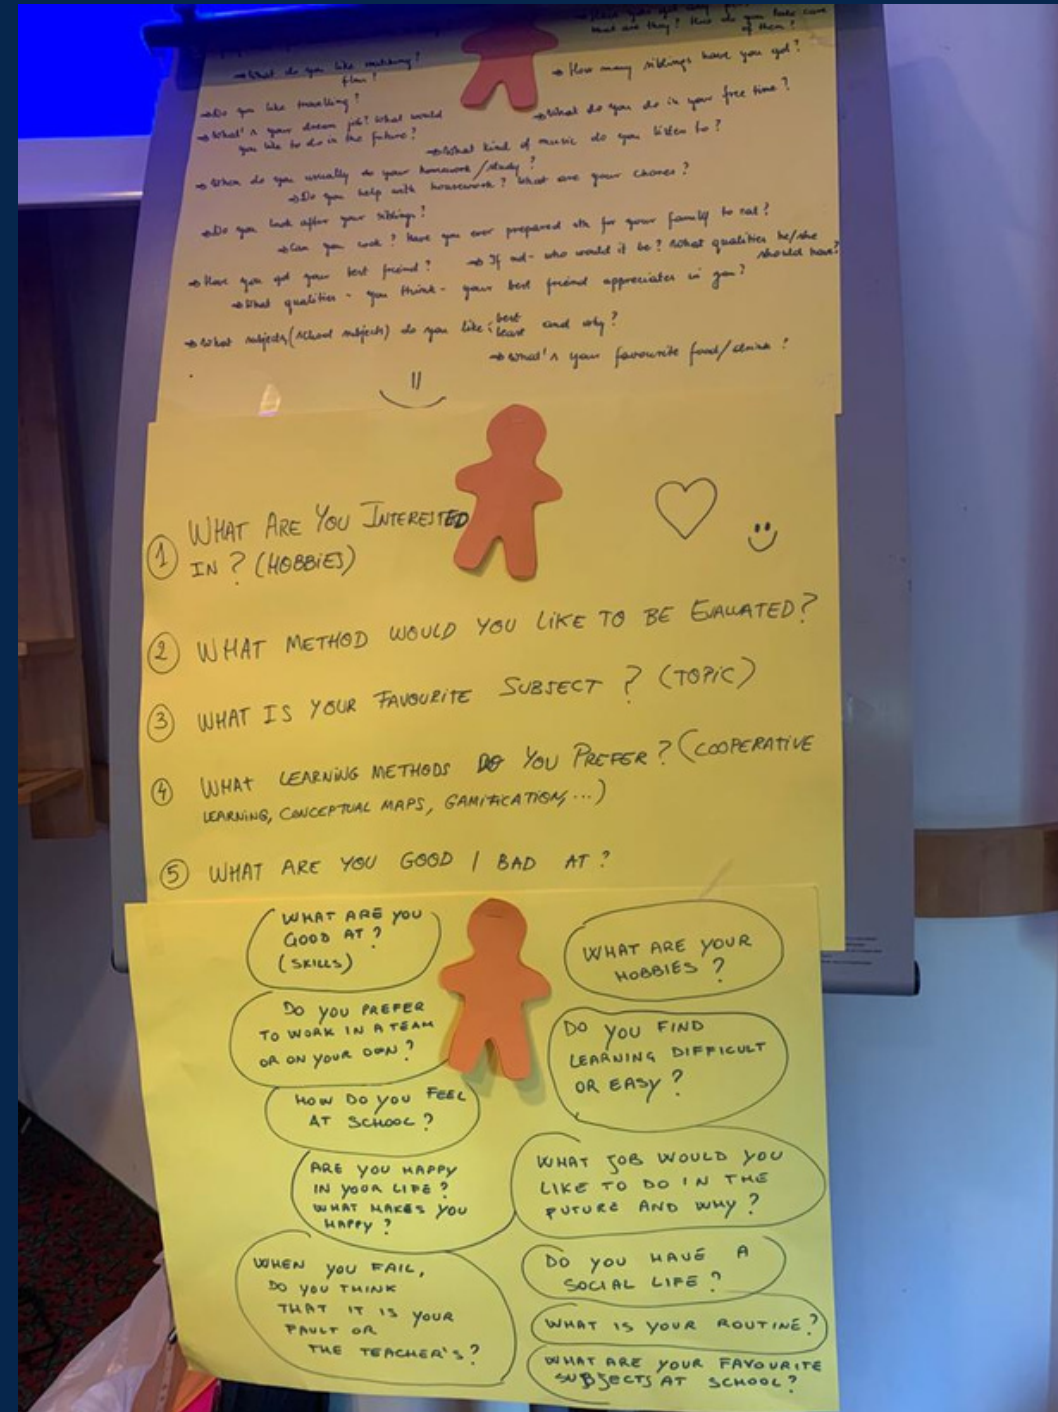 what are they? How do you take care
of them?
→ What do you like watching?
→ How many siblings have you got?
→ Do you like travelling?
→ What do you do in your free time?
→ What's your dream job? What would
you like to do in the future?
→ What kind of music do you listen to?
→ When do you usually do your homework/study?
→ Do you help with housework? What are your chores?
→ Do you look after your siblings?
→ Can you cook? Have you ever prepared sth for your family to eat?
→ Have you got your best friend? → If not - who would it be? What qualities he/she
should have?
→ What qualities - you think - your best friend appreciates in you?
→ What subjects (school subjects) do you like: best
least and why?
→ What's your favourite food/drink?
① WHAT ARE YOU INTERESTED
IN? (HOBBIES)
② WHAT METHOD WOULD YOU LIKE TO BE EVALUATED?
③ WHAT IS YOUR FAVOURITE SUBJECT? (TOPIC)
④ WHAT LEARNING METHODS DO YOU PREFER? (COOPERATIVE
LEARNING, CONCEPTUAL MAPS, GAMIFICATION, ...)
⑤ WHAT ARE YOU GOOD / BAD AT?
WHAT ARE YOU
GOOD AT?
(SKILLS)
WHAT ARE YOUR
HOBBIES?
DO YOU PREFER
TO WORK IN A TEAM
OR ON YOUR OWN?
DO YOU FIND
LEARNING DIFFICULT
OR EASY?
HOW DO YOU FEEL
AT SCHOOL?
ARE YOU HAPPY
IN YOUR LIFE?
WHAT MAKES YOU
HAPPY?
WHAT JOB WOULD YOU
LIKE TO DO IN THE
FUTURE AND WHY?
WHEN YOU FAIL,
DO YOU THINK
THAT IT IS YOUR
FAULT OR
THE TEACHER'S?
DO YOU HAVE A
SOCIAL LIFE?
WHAT IS YOUR ROUTINE?
WHAT ARE YOUR FAVOURITE
SUBJECTS AT SCHOOL?